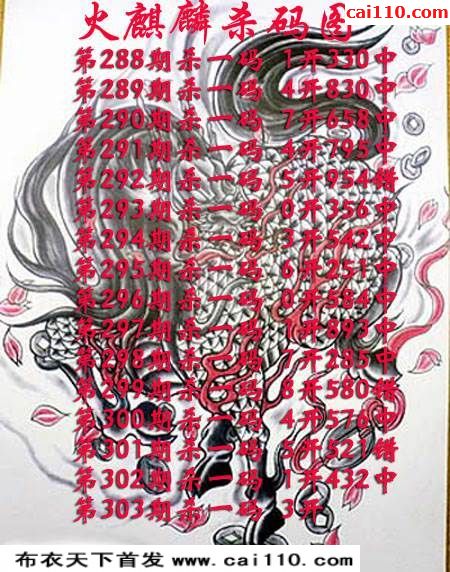 cai110.com
火麒麟杀码图
第288期杀一码 1开330中
第289期杀一码 4开830中
第290期杀一码 7开658中
第291期杀一码 4开795中
第292期杀一码 5开954错
第293期杀一码 0开356中
第294期杀一码 3开542中
第295期杀一码 6开251中
第296期杀一码 0开584中
第297期杀一码 1开893中
第298期杀一码 7开285中
第299期杀一码 8开580错
第300期杀一码 4开576中
第301期杀一码 5开521错
第302期杀一码 1开432中
第303期杀一码 3开
布衣天下首发 www.cai110.com